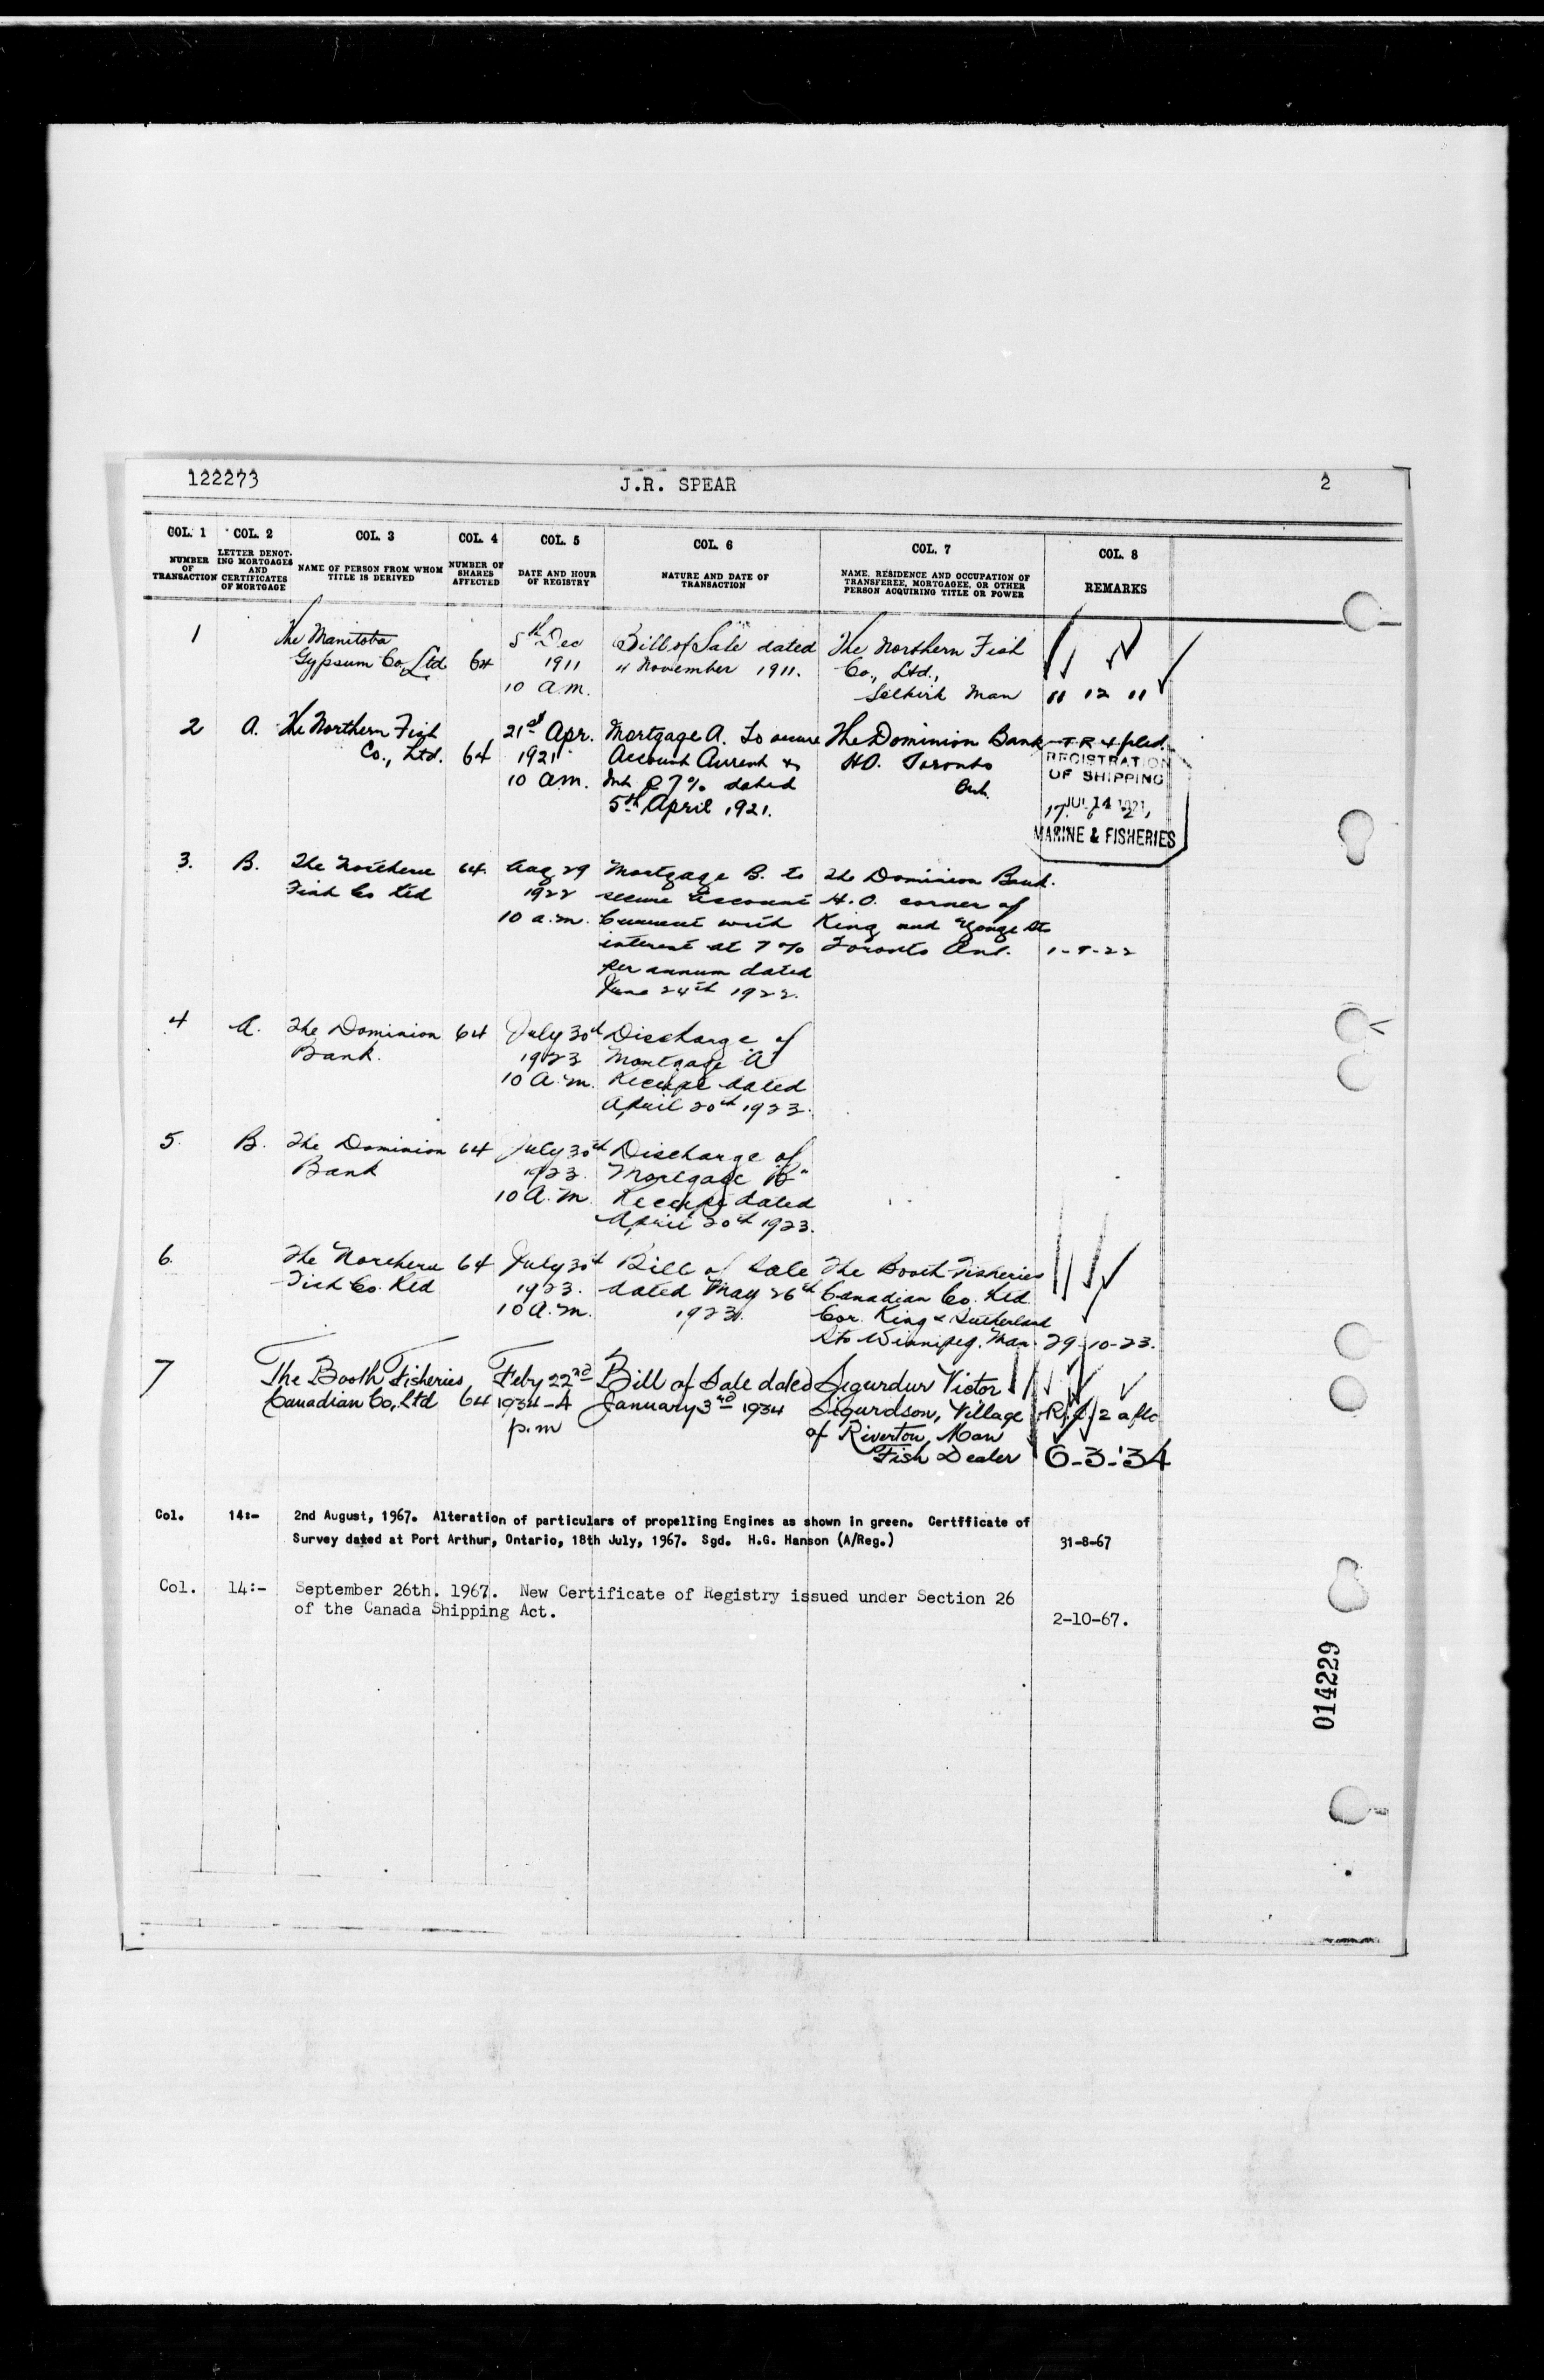 122273 J.R. SPEAR 2
COL. 1 COL. 2 COL. 3 COL. 4 COL. 5 COL. 6 COL. 7 COL. 8
NUMBER OF TRANSACTION
LETTER DENOT-ING MORTGAGES AND CERTIFICATES OF MORTGAGE
NAME OF PERSON FROM WHOM TITLE IS DERIVED
NUMBER OF SHARES AFFECTED
DATE AND HOUR OF REGISTRY
NATURE AND DATE OF TRANSACTION
NAME, RESIDENCE AND OCCUPATION OF TRANSFEREE, MORTGAGEE, OR OTHER PERSON ACQUIRING TITLE OR POWER
REMARKS
1 The Manitoba 5th Dec Bill of Sale dated The Northern Fish
Gypsum Co Ltd 64 1911 4 November 1911. Co., Ltd.,
10 a.m. Selkirk Man 11 12 11
2 A. The Northern Fish 21st Apr. Mortgage A. To secure The Dominion Bank
Co., Ltd. 64 1921 Account Current & HO. Toronto
10 am. Int @ 7% dated Ont.
5th April 1921.
REGISTRATION
OF SHIPPING
JUL 14 1921
MARINE & FISHERIES
3. B. The Northern 64. Aug 29 Mortgage B. to The Dominion Bank.
Fish Co Ltd 1922 secure Account H.O. corner of
10 a.m. Current with King and Yonge Sts
interest at 7% Toronto Ont. 1-9-22
per annum dated
June 24th 1922.
4 A. The Dominion 64 July 30th Discharge of
Bank. 1923 Mortgage "A"
10 A.M. Receipt dated
April 20th 1923.
5. B. The Dominion 64 July 30th Discharge of
Bank 1923. Mortgage "B"
10 A.M. Receipt dated
April 20th 1923.
6. The Northern 64 July 30th Bill of Sale The Booth Fisheries
Fish Co. Ltd 1923. dated May 26th Canadian Co. Ltd.
10 A.M. 1923. Cor. King & Sutherland
Sts Winnipeg. Man. 29-10-23.
7 The Booth Fisheries Feby 22nd Bill of Sale dated Sigurdur Victor
Canadian Co, Ltd 64 1934-4 January 3rd 1934 Sigurdson, Village
p.m of Riverton, Man
Fish Dealer 6-3-'34
Col. 14:- 2nd August, 1967. Alteration of particulars of propelling Engines as shown in green. Certfficate of
Survey dated at Port Arthur, Ontario, 18th July, 1967. Sgd. H.G. Hanson (A/Reg.) 31-8-67
Col. 14:- September 26th. 1967. New Certificate of Registry issued under Section 26
of the Canada Shipping Act. 2-10-67.
014229